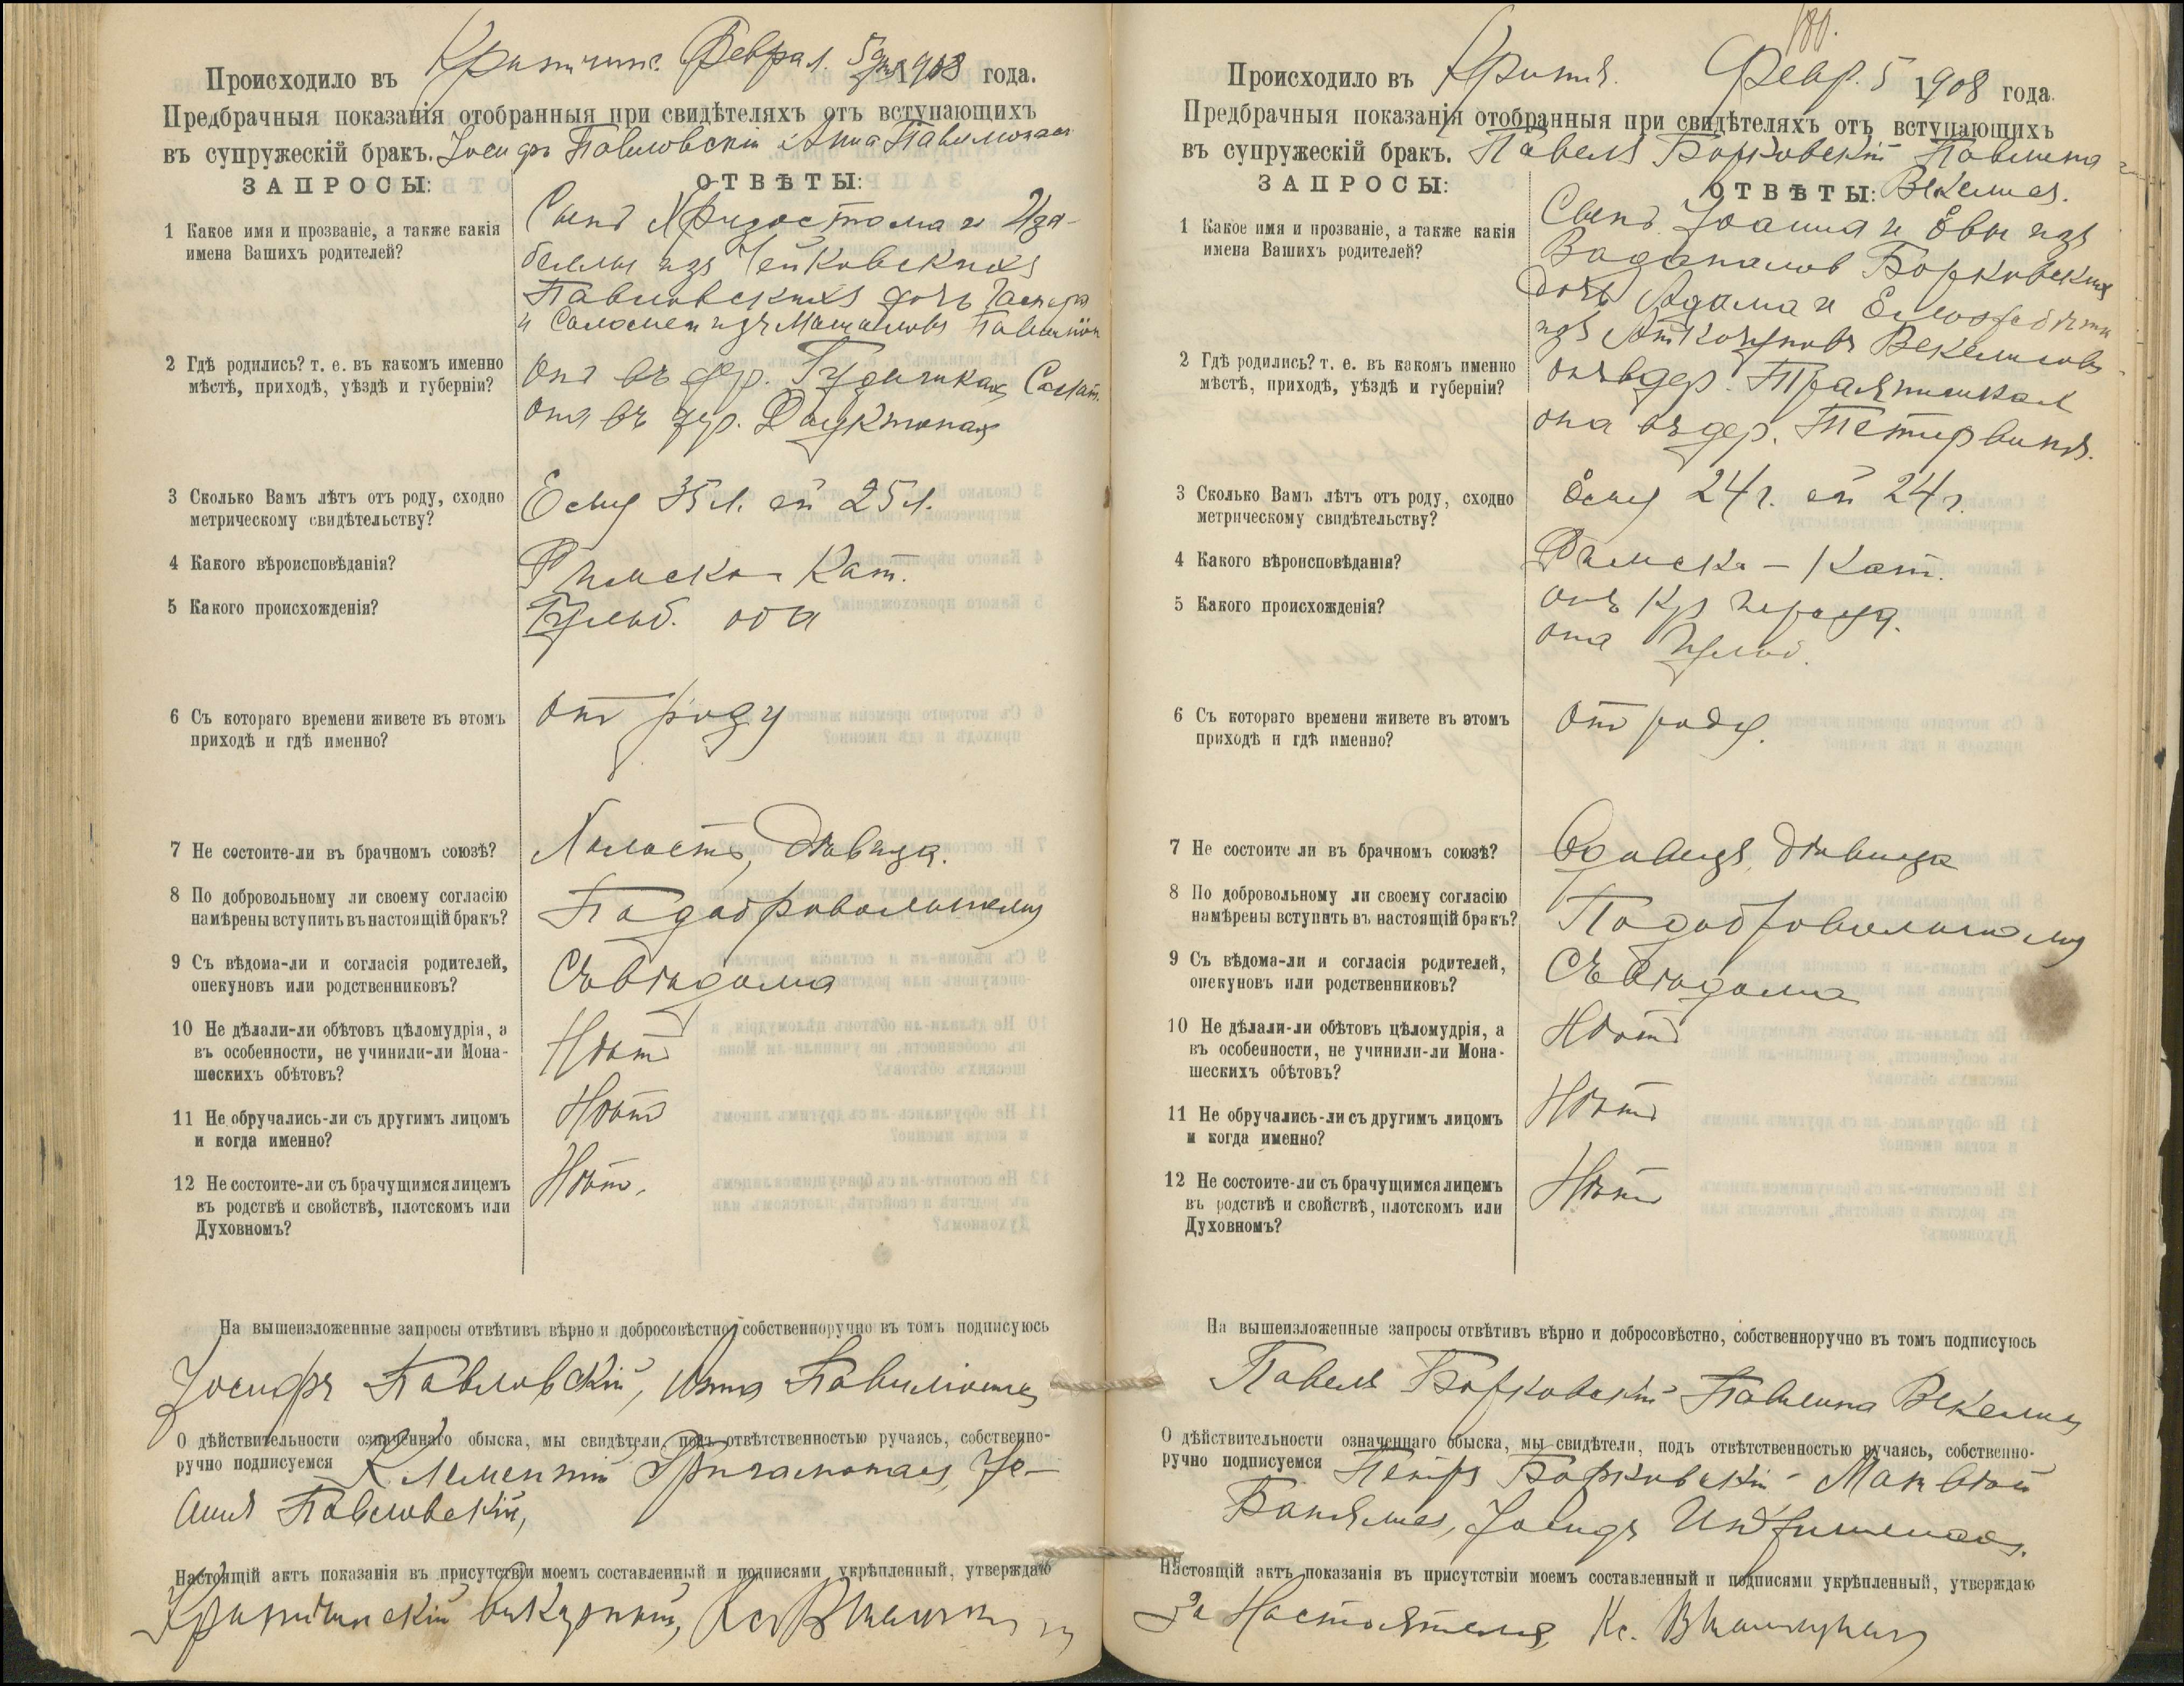 Происходило въ Феврал. 5 дня 1908 года.
Предбрачныя показанія отобранныя при свидѣтеляхъ отъ вступающихъ
въ супружескій бракъ. Іосифъ Павловскій и Анна
ЗАПРОСЫ: ОТВѢТЫ:
1 Какое имя и прозваніе, а также какія
имена Вашихъ родителей?
Сынъ Хризостома и Иза-
беллы изъ
Павловскихъ дочь
и Саломеи изъ
2 Гдѣ родились? т. е. въ какомъ именно
мѣстѣ, приходѣ, уѣздѣ и губерніи?
Онъ въ дер.
Она въ дер.
3 Сколько Вамъ лѣтъ отъ роду, сходно
метрическому свидѣтельству?
Ему 35 л. ей 25 л.
4 Какого вѣроисповѣданія?
Римско-Кат.
5 Какого происхожденія?
оба
6 Съ котораго времени живете въ этомъ
приходѣ и гдѣ именно?
Отъ роду
7 Не состоите-ли въ брачномъ союзѣ?
Холостъ, дѣвица.
8 По добровольному ли своему согласію
намѣрены вступить въ настоящій бракъ?
По добровольному
9 Съ вѣдома-ли и согласія родителей,
опекуновъ или родственниковъ?
Съ вѣдома
10 Не дѣлали-ли обѣтовъ цѣломудрія, а
въ особенности, не учинили-ли Мона-
шескихъ обѣтовъ?
Нѣтъ
11 Не обручались-ли съ другимъ лицомъ
и когда именно?
Нѣтъ
12 Не состоите-ли съ брачущимся лицемъ
въ родствѣ и свойствѣ, плотскомъ или
Духовномъ?
Нѣтъ.
На вышеизложенные запросы отвѣтивъ вѣрно и добросовѣстно, собственноручно въ томъ подписуюсь
Іосифъ Павловскій, Анна
О дѣйствительности означеннаго обыска, мы свидѣтели, подъ отвѣтственностью ручаясь, собственно-
ручно подписуемся Климентій Іо-
аннъ Павловскій,
Настоящій актъ показанія въ присутствіи моемъ составленный и подписями укрѣпленный, утверждаю
викарный, Кс.
180.
Происходило въ Февр. 5 1908 года
Предбрачныя показанія отобранныя при свидѣтеляхъ отъ вступающихъ
въ супружескій бракъ. Павелъ Борковскій Павлина
ЗАПРОСЫ: ОТВѢТЫ:
1 Какое имя и прозваніе, а также какія
имена Вашихъ родителей?
Сынъ Іоанна и Евы изъ
Борковскихъ
дочь Адама и
изъ
2 Гдѣ родились? т. е. въ какомъ именно
мѣстѣ, приходѣ, уѣздѣ и губерніи?
онъ въ дер.
она въ дер.
3 Сколько Вамъ лѣтъ отъ роду, сходно
метрическому свидѣтельству?
Ему 24 г. ей 24 г.
4 Какого вѣроисповѣданія?
Римско-Кат.
5 Какого происхожденія?
онъ
она
6 Съ котораго времени живете въ этомъ
приходѣ и гдѣ именно?
Отъ роду.
7 Не состоите ли въ брачномъ союзѣ?
Вдовецъ, дѣвица
8 По добровольному ли своему согласію
намѣрены вступить въ настоящій бракъ?
По добровольному
9 Съ вѣдома-ли и согласія родителей,
опекуновъ или родственниковъ?
Съ вѣдома
10 Не дѣлали-ли обѣтовъ цѣломудрія, а
въ особенности, не учинили-ли Мона-
шескихъ обѣтовъ?
Нѣтъ
11 Не обручались-ли съ другимъ лицомъ
и когда именно?
Нѣтъ
12 Не состоите-ли съ брачущимся лицемъ
въ родствѣ и свойствѣ, плотскомъ или
Духовномъ?
Нѣтъ
На вышеизложенные запросы отвѣтивъ вѣрно и добросовѣстно, собственноручно въ томъ подписуюсь
Павелъ Борковскій Павлина
О дѣйствительности означеннаго обыска, мы свидѣтели, подъ отвѣтственностью ручаясь, собственно-
ручно подписуемся Петръ Борковскій
Іосифъ
Настоящій актъ показанія въ присутствіи моемъ составленный и подписями укрѣпленный, утверждаю
За Настоятеля, Кс.